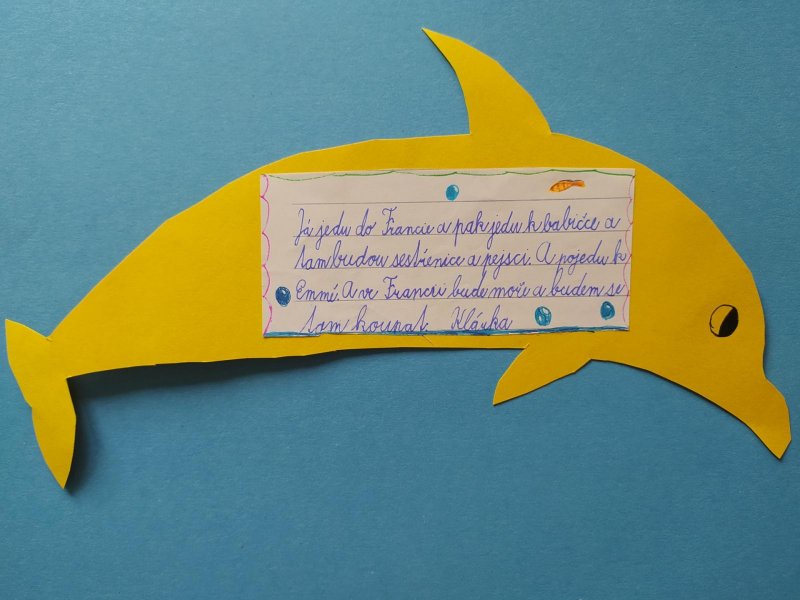 Já jedu do Francie a pak jedu k babičce a
tam budou sestřenice a pejsci. A pojedu k
Emmě. A ve Francii bude moře a budem se
tam koupat. Klárka